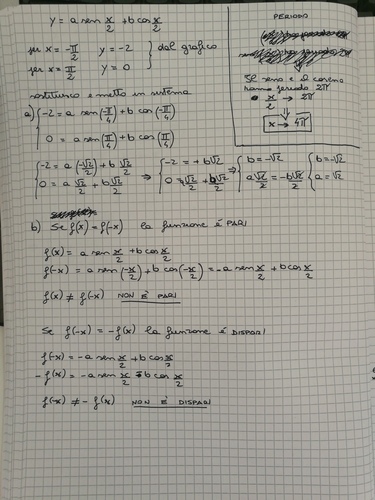 y = a sen x/2 + b cos x/2
per x = -π/2  y = -2
per x = π/2  y = 0
} dal grafico
sostituisco e metto in sistema
a) { -2 = a sen(-π/4) + b cos(-π/4)
0 = a sen(π/4) + b cos(π/4)
{ -2 = a(-√2/2) + b √2/2
0 = a √2/2 + b √2/2
⇒ { -2 = + b√2
0 = √2/2 + b√2/2
⇒ { b = -√2
a√2/2 = -b√2/2
{ b = -√2
a = √2
PERIODO
Se seno e il coseno
hanno periodo 2π
x/2 → 2π
⇓
x → 4π
b) Se f(x) = f(-x) la funzione è PARI
f(x) = a sen x/2 + b cos x/2
f(-x) = a sen(-x/2) + b cos(-x/2) = -a sen x/2 + b cos x/2
f(x) ≠ f(-x) NON È PARI
Se f(-x) = -f(x) la funzione è DISPARI
f(-x) = -a sen x/2 + b cos x/2
-f(x) = -a sen x/2 - b cos x/2
f(-x) ≠ -f(x) NON È DISPARI